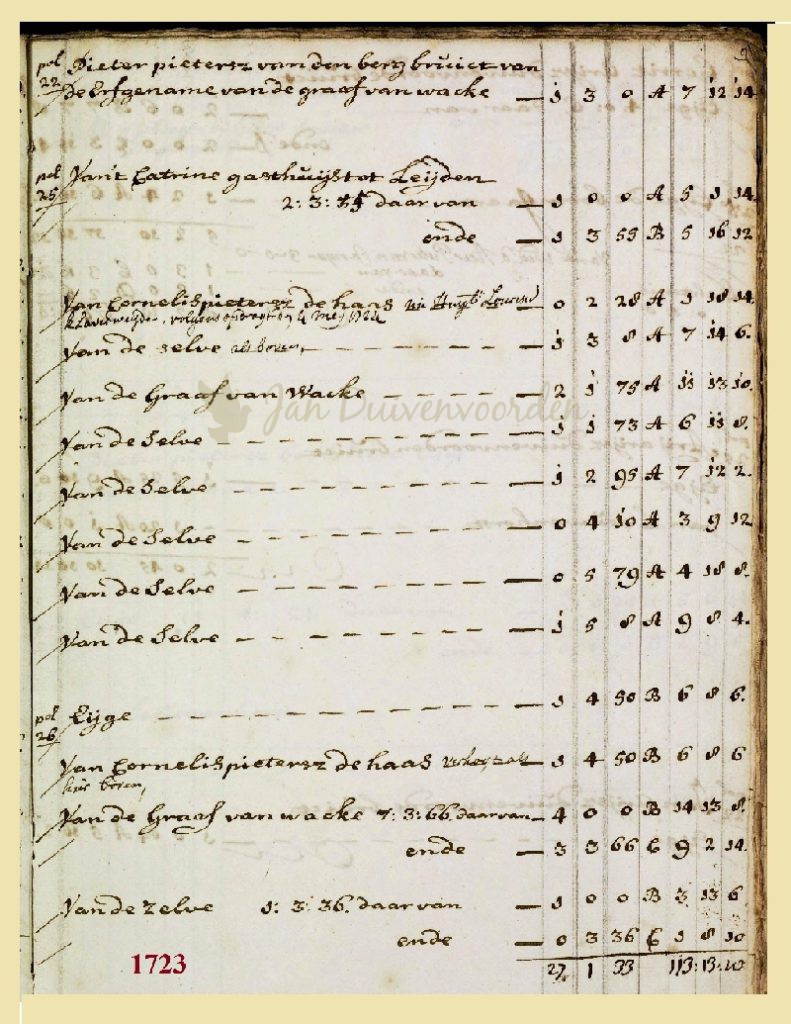 pol Pieter pietersz van den berg bruict van
22 De Erfgename van de graaf van wacke — 1 3 0 A 7 12 14
pol Van't Catrine gasthuijs tot Leijden
25 2: 3: 55 daar van — 1 0 0 A 5 1 14
ende — 1 3 55 B 5 16 12
Van Cornelis pietersz de haas — 0 2 28 A 1 18 14
4 Meij 1724
Van de selve als boven, — 1 3 8 A 7 14 6.
Van de Graaf van Wacke — 2 1 75 A 11 13 10
Jan Duivenvoorden
Van de Selve — 1 1 73 A 6 11 8.
Van de Selve — 1 2 95 A 7 12 2.
Van de Selve — 0 4 10 A 3 9 12
Van de Selve — 0 5 79 A 4 18 8.
Van de Selve — 1 5 8 A 9 8 4.
pol
26 Eijge — 1 4 50 B 6 8 6.
Van Cornelis pietersz de haas — 1 4 50 B 6 8 6
hier boven,
Van de Graaf van wacke 7: 3: 66. daar van — 4 0 0 B 14 13 8.
ende — 3 3 66 C 9 2 14.
Van de zelve 1: 3: 36. daar van — 1 0 0 B 3 13 6
ende — 0 3 36 C 1 8 10
1723
27 1 33 113: 13: 10